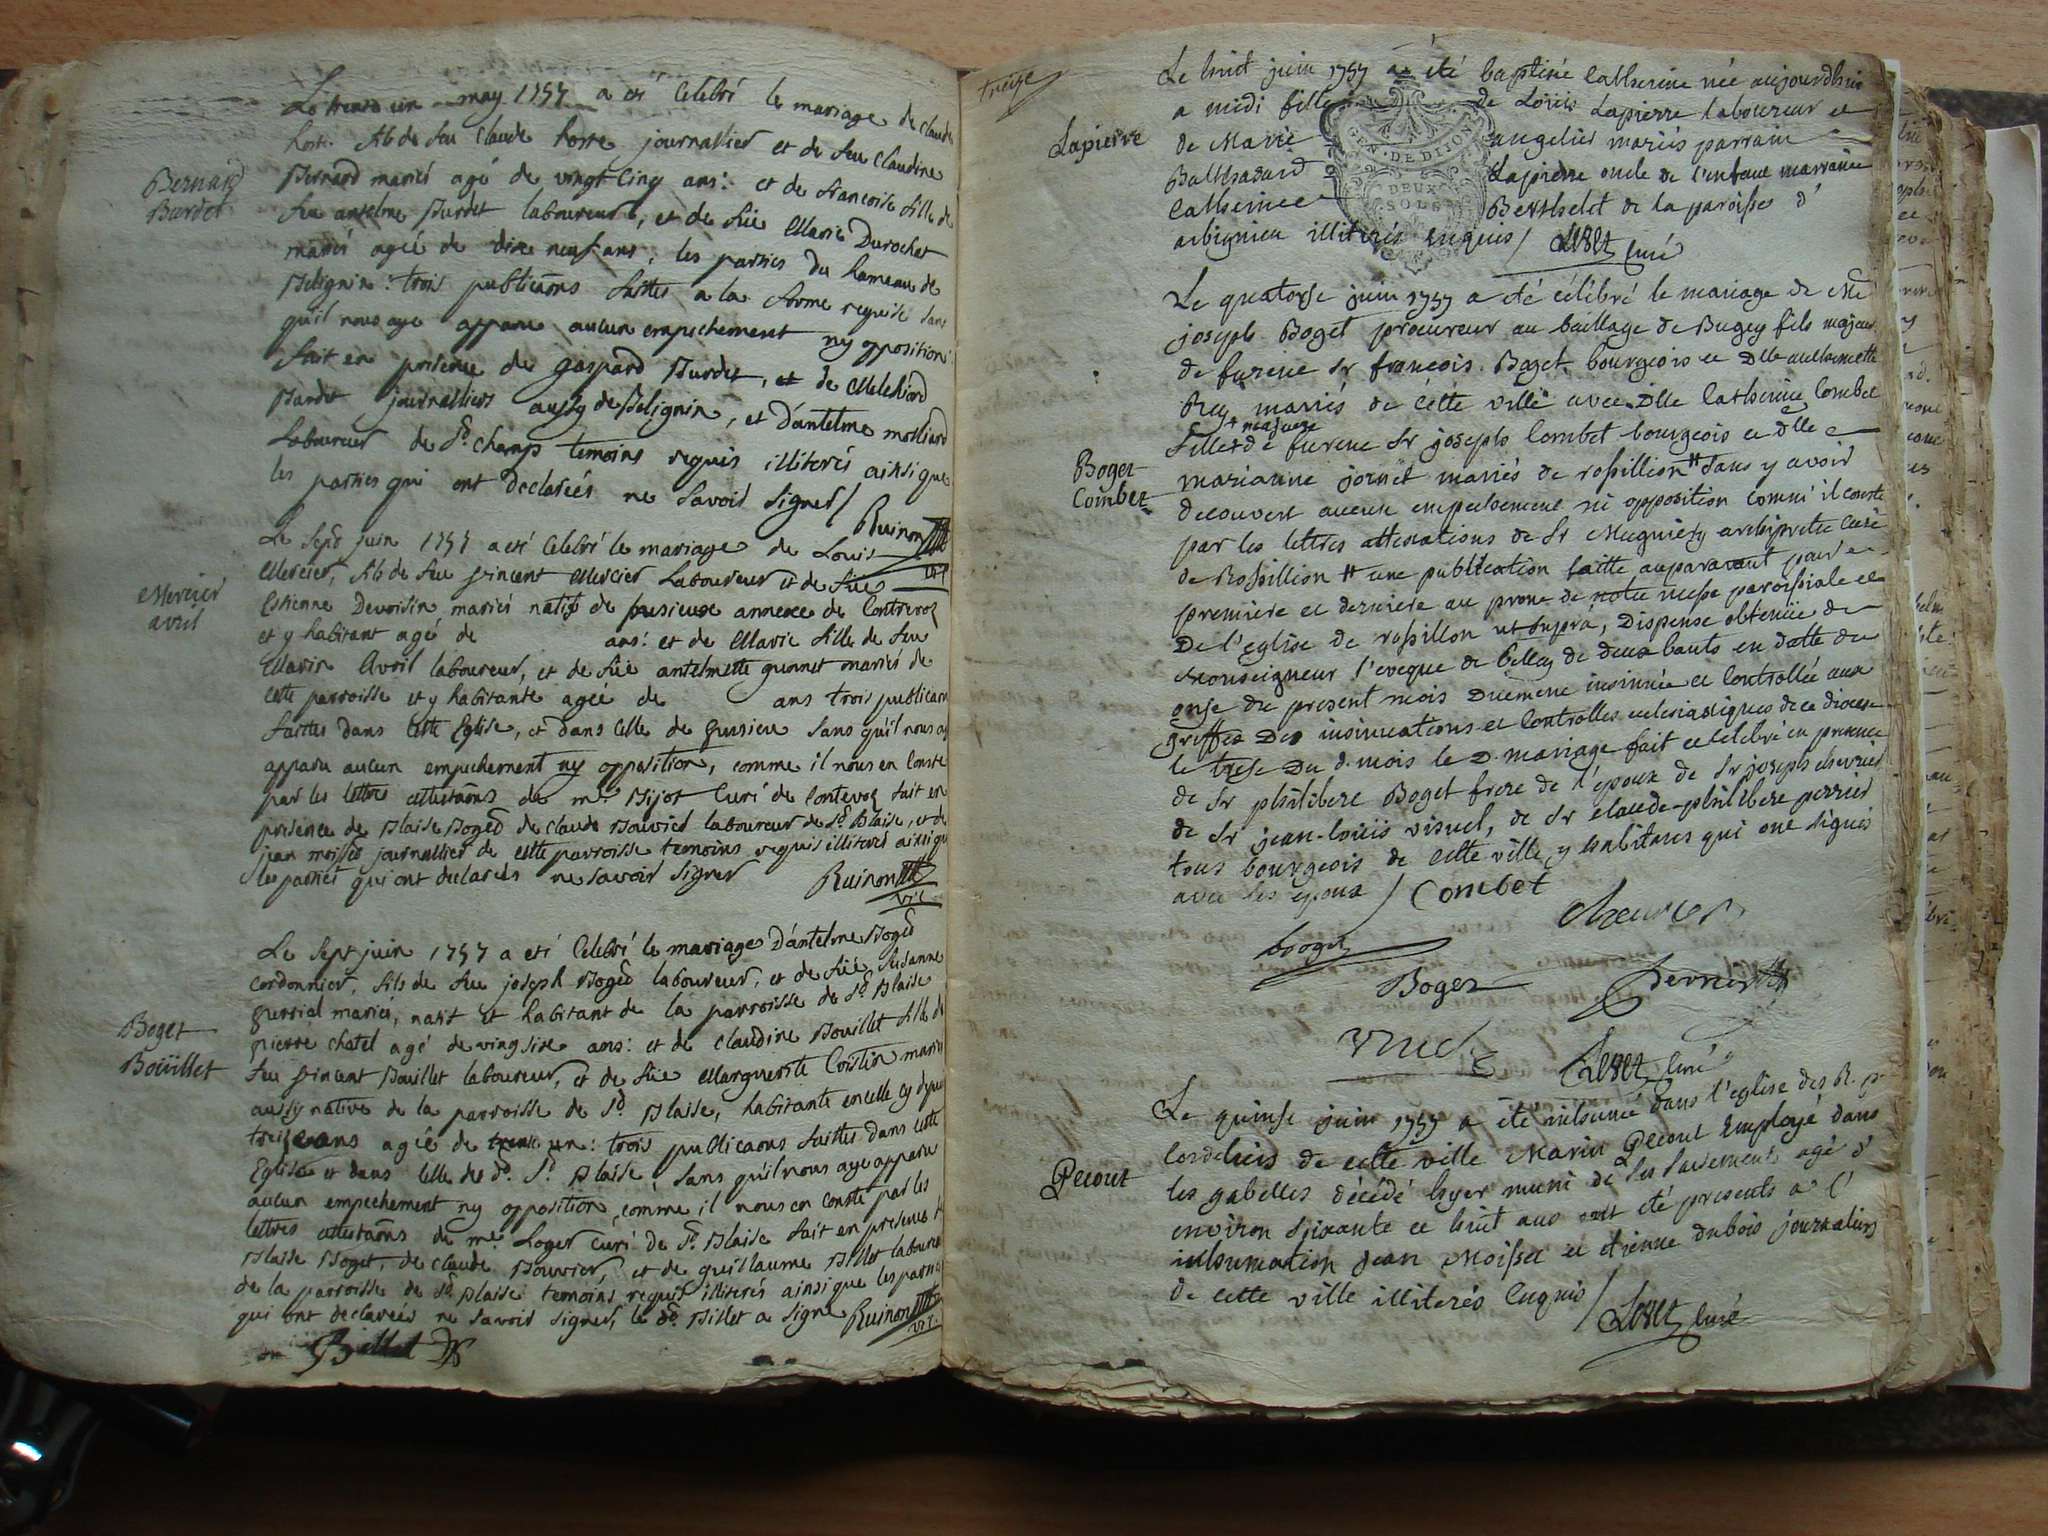 Bernard
Burdet
Le trente un may 1757 a eté Celebré le mariage de claude
hoste fils de feu Claude hoste journallier et de feu Claudine
Bernard mariés agé de vingt Cinq ans: et de francoise fille de
feu antelme Burdet laboureur, et de füe Marie Durochat
mariés agée de dix neuf ans, les parties du hameau de
Belignin: trois publicaõns faittes a la forme requise sans
qu'il nous aye apparu aucun empechement ny opposition
fait en presence de gaspard Burdet, et de Melchiord
Burdet journalliers aussy de Belignin, et d'antelme
Laboureur de St champs temoins requis illiterés ainsique
les parties qui ont declarées ne savoir signer /
Ruinon vic
Mercier
avril
Le sept juin 1757 a eté Celebré le mariage de Louis
Mercier, fils de feu vincent Mercier Laboureur et de füe
Estienne Devoisin mariés natif de pusieux annexe de Contrevoz
et y habitant agé de ans: et de Marie fille de feu
Marin Avril laboureur, et de füe antelmette gonnet mariés de
cette parroisse et y habitante agée de ans trois publicaõns
faittes dans cette Eglise, et dans celle de pusieu sans qu'il nous aye
apparu aucun empechement ny opposition, comme il nous en Conste
par les lettres attestaõns de mre Bijot Curé de Contevoz fait en
presence de Blaise Boged de Claude Bouvied laboureur de St Blaise, et de
jean moissed journallier de cette parroisse temoins requis illiterés ainsique
les parties qui ont declarées ne savoir signer
Ruinon vic
Boget
Boüillet
Le sept juin 1757 a eté Celebré le mariage D'antelme Boged
cordonnier, fils de feu joseph Boged laboureur, et de füe Susanne
mariés, natif et habitant de la parroisse de St Blaise
pierre chatel agé de vingt six ans: et de Claudine Bouillet fille de
feu vincent Bouillet laboureur, et de füe Marguerite Costin mariés
aussy native de la parroisse de St Blaise, habitante en celle cy depuis
treize ans agée de trente un: trois publicaõns faittes dans cette
Eglise et dans celle de dt St Blaise, sans qu'il nous aye apparu
aucun empechement ny opposition, comme il nous en Conste par les
lettres attestaõns de mre Loger Curé de St Blaise fait en presence de
Blaise Boget, de claude Bouvier, et de guillaume Billet laboureurs
de la parroisse de St Blaise temoins requis illiterés ainsique les parties
qui ont declarées ne savoir signer, le dt Billet a signé Ruinon vic
Billet
treize
Lapierre
Le huit juin 1757 a été baptisée Catherine née aujourdhui
a midi fille de Loüis Lapierre laboureur et
de Marie angelier mariés parrain
Balthazard Lapierre oncle de l'enfant marraine
Catherine Berthelet de la paroisse d'
arbignieu illiterés enquis / curé
GEN. DE DIJON
DEUX
SOLS
Boget
Combet
Le quatorse juin 1757 a été célébré le mariage de Me
joseph Boget procureur au baillage de Bugey fils majeur
de furent Sr françois Boget bourgeois et Dlle anthemette
Rey mariés de cette ville avec Dlle Catherine Combet
+ majeure
fille + de furent Sr joseph Combet bourgeois et dlle
marianne jornet mariés de rossillion # sans y avoir
decouvert aucun empechement ni opposition comm' il conste
par les lettres attestations de Sr Mugniery archiprêtre curé
de Rossillion # une publication faitte auparavant pour
premiere et derniere au prone de notre messe paroissiale et
De l'eglise de rossillon ut supra, Dispense obtenüe de
Monseigneur l'eveque de belley de deux bants en datte du
onze du present mois Duement insinuée et Controllée aux
greffes Des insinuations et Controlles ecclesiastiques de ce diocese
le treze Du d. mois le D. mariage fait et celebré en presence
de Sr philibert Boget frere de l'époux de Sr joseph chevrier
de Sr jean-loüis visuel, de Sr claude-philibert perrier
tous bourgeois de cette ville y habitants qui ont signés
avec les epoux / Combet
Chevrier
boget
Boget
perrier
curé
Pecout
Le quinse juin 1757 a été inhumé dans l'eglise des R. P.
Cordeliers de cette ville Marin Pecout Employé dans
les gabelles décédé hyer muni de ses sacrements agé d'
environ soixante et huit ans ont été presents a l'
inhumation jean Moisset et etienne dubois journaliers
de cette ville illiterés enquis / curé